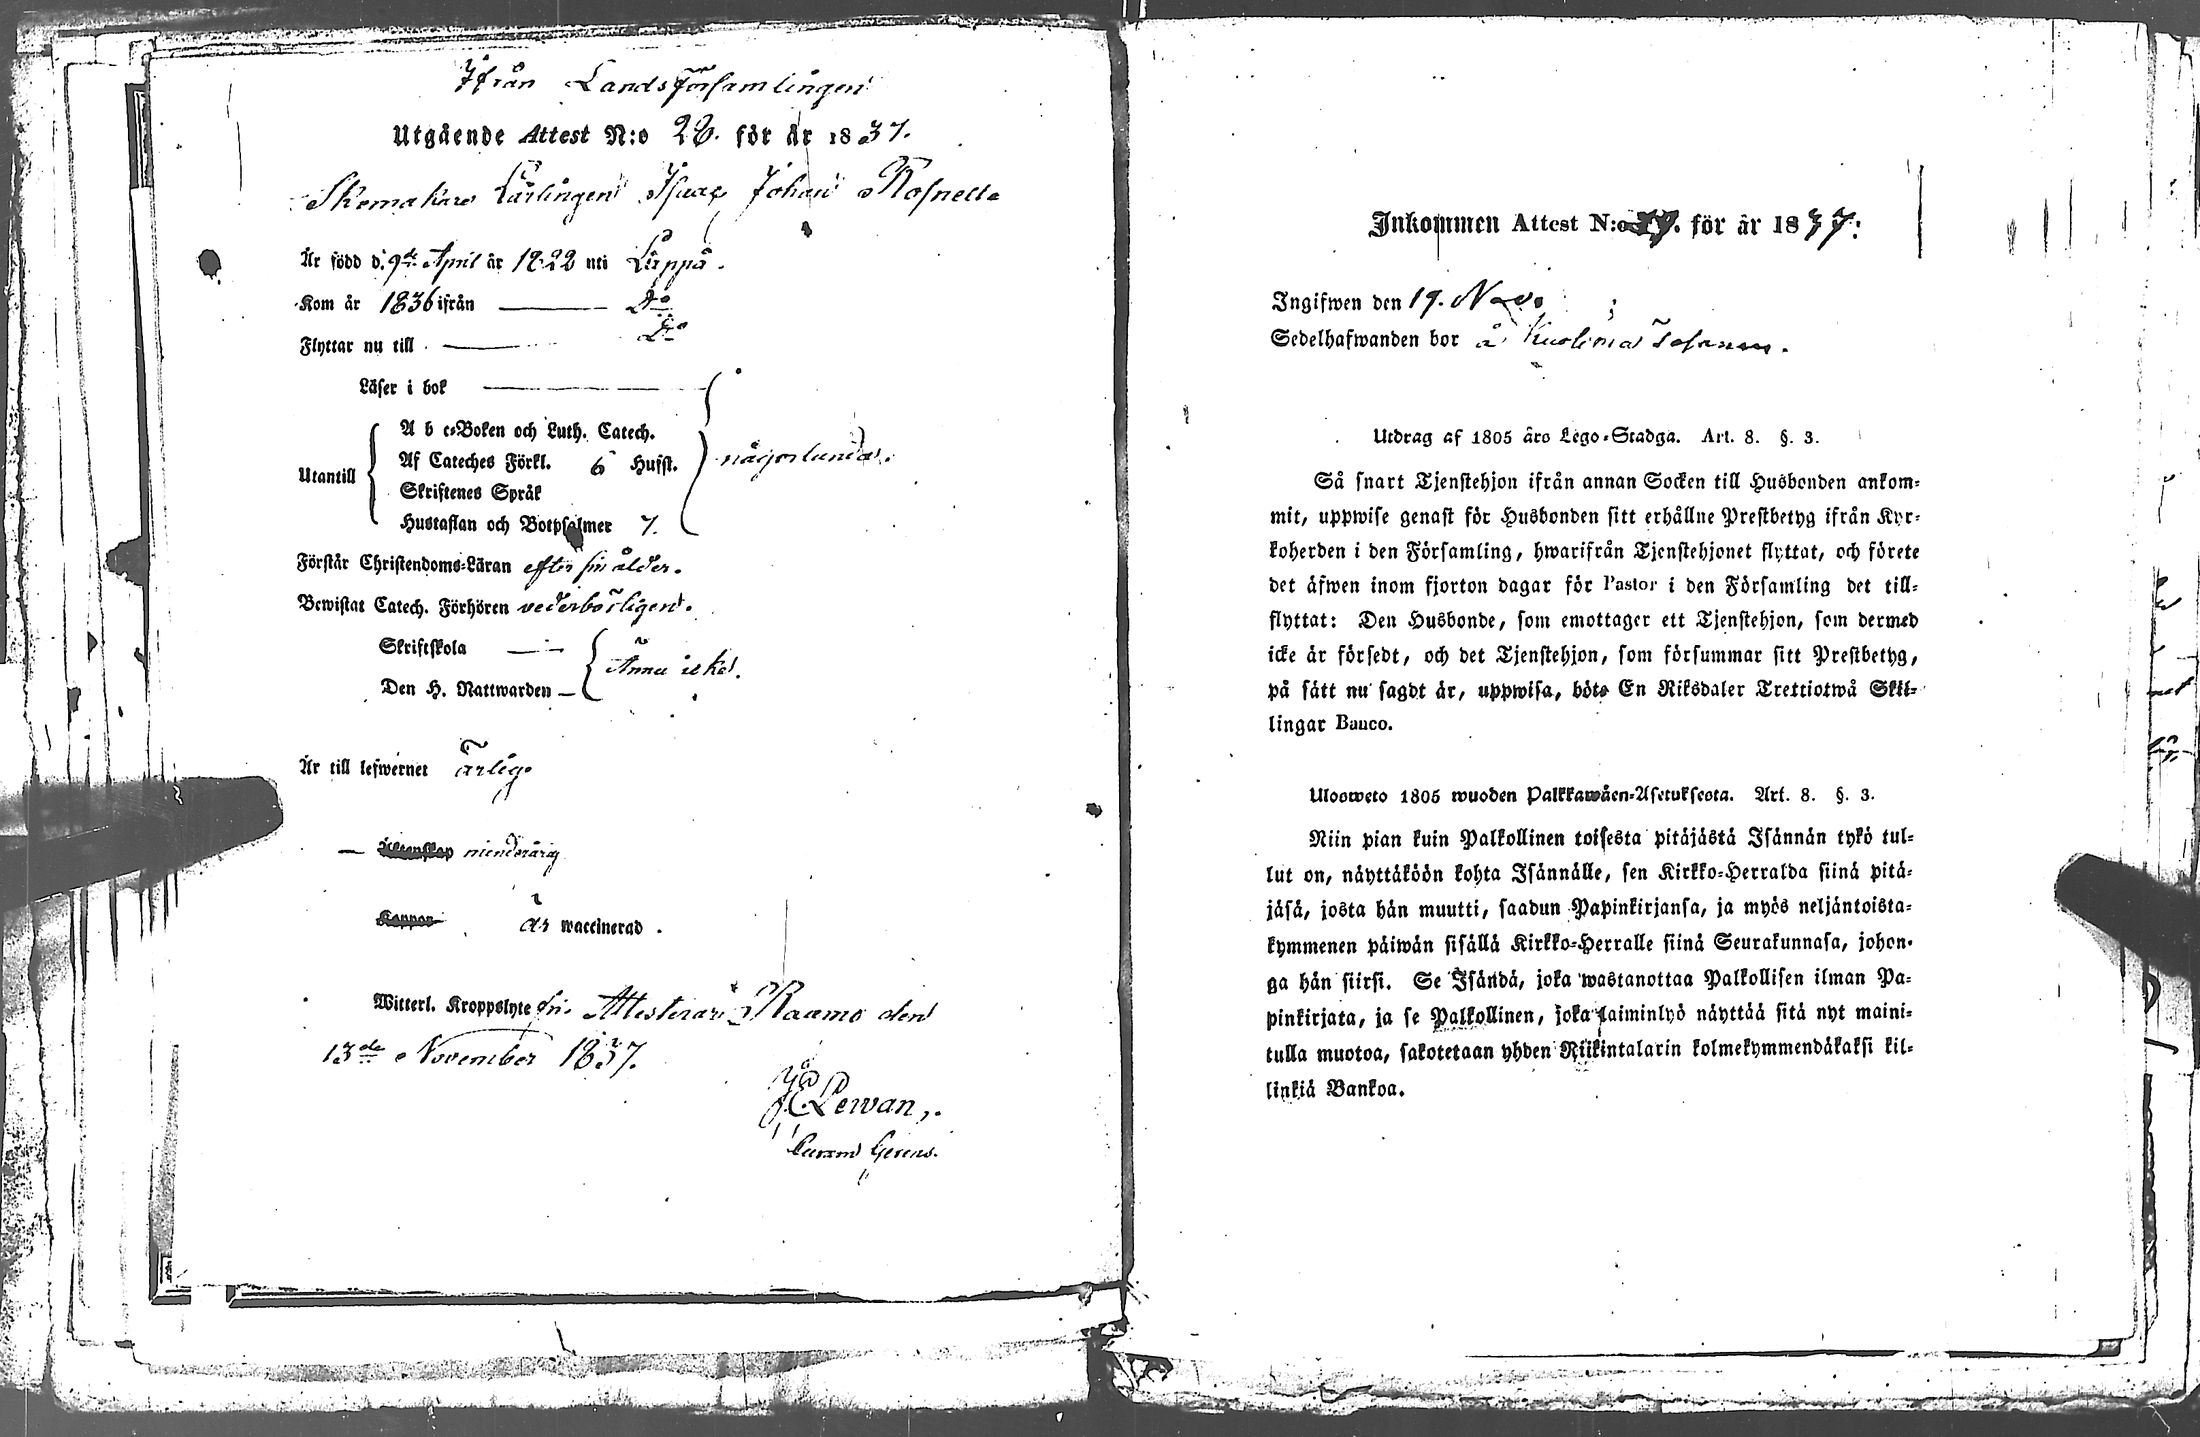 Ifrån Landsförsamlingen
Utgående Attest N:o 28. för år 1837.
Skomakare Lärlingen Isaac Johan Rosnell
Är född d. 9de April år 1822 uti Lappå.
Kom år 1836 ifrån — Do
Flyttar nu till — Do
Läser i bok
A b c-Boken och Luth. Catech.
Af Cateches Förkl. 6 Hufst.
någorlunda.
Utantill
Skriftenes Språk
Hustaflan och Botpsalmer 7.
Förstår Christendoms-Läran efter sin ålder.
Bewistat Catech. Förhören vederbörligen.
Skriftskola —
Ännu icke.
Den H. Nattwarden —
Är till lefwernet ärlig
— Äktenskap minderårig
Koppor är waccinerad.
Witterl. Kroppslyte fri. Attesterar Raamo den
13de November 1837.
Lewan,.
Gerens.
Inkommen Attest N:o för år 1837:
Ingifwen den 19. Nov.
Sedelhafwanden bor å
Utdrag af 1805 års Lego-Stadga. Art. 8. §. 3.
Så snart Tjenstehjon ifrån annan Socken till Husbonden ankom-
mit, uppwise genast för Husbonden sitt erhållne Prestbetyg ifrån Kyr-
koherden i den Församling, hwarifrån Tjenstehjonet flyttat, och förete
det äfwen inom fjorton dagar för Pastor i den Församling det till-
flyttat: Den Husbonde, som emottager ett Tjenstehjon, som dermed
icke är försedt, och det Tjenstehjon, som försummar sitt Prestbetyg,
på sätt nu sagdt är, uppwisa, böte En Riksdaler Trettiotwå Skil-
lingar Banco.
Ulosweto 1805 wuoden Palkkawäen-Asetuksesta. Art. 8. §. 3.
Niin pian kuin Palkollinen toisesta pitäjästä Isännän tykö tul-
lut on, näyttäköön kohta Isännälle, sen Kirkko-Herralda siinä pitä-
jäsä, josta hän muutti, saadun Papinkirjansa, ja myös neljäntoista-
kymmenen päiwän sisällä Kirkko-Herralle siinä Seurakunnasa, johon-
ga hän siirsi. Se Isändä, joka wastanottaa Palkollisen ilman Pa-
pinkirjata, ja se Palkollinen, joka laiminlyö näyttää sitä nyt maini-
tulla muotoa, sakotetaan yhden Riikintalarin kolmekymmendäkaksi kil-
linkiä Bankoa.